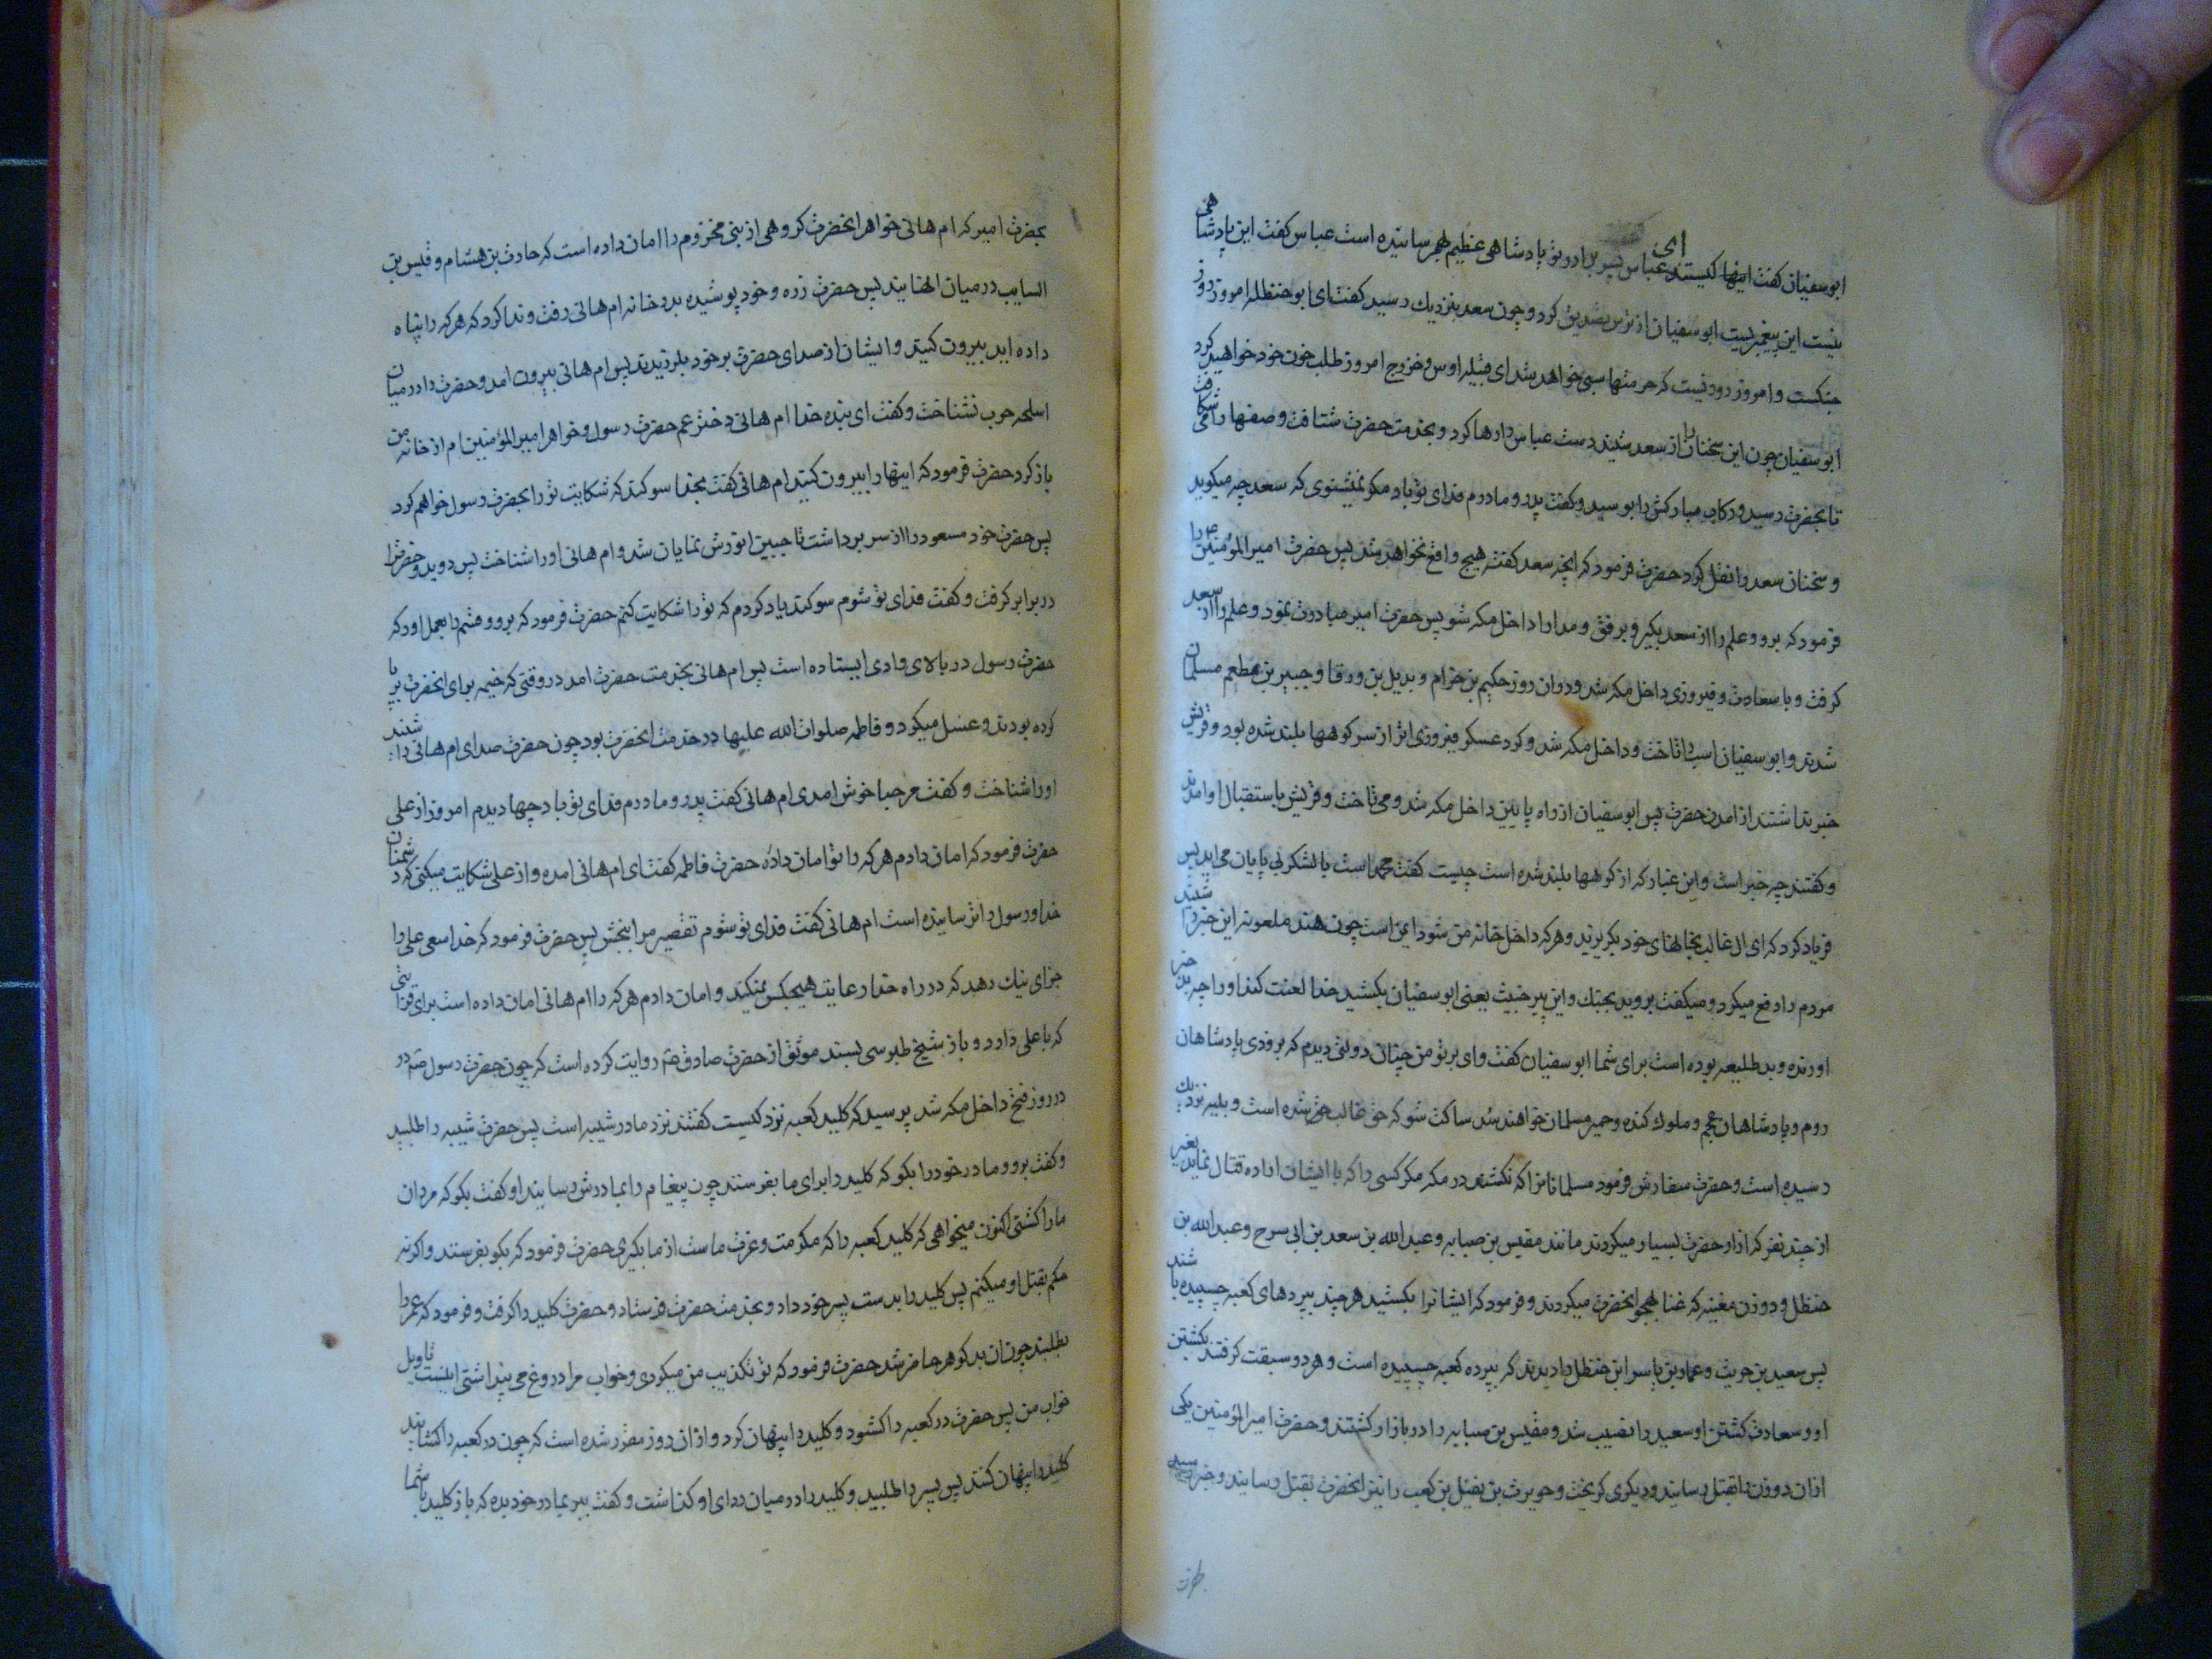 ابوسفیان کفت اینها کیستند ای عباس پسر برادر تو پادشاهی عظیم بهم رسانیده است عباس کفت این پادشاهی
نیست این پیغمبریست ابوسفیان از ترس تصدیق کرد و چون سعد بنزدیك رسید کفت ای ابو حنظله امروز روز
جنکست و امروز روزیست که حرمتها سبی خواهد شد ای قبیله اوس و خزرج امروز طلب خون خود خواهید کرد
ابوسفیان چون این سخنان را از سعد شنید دست عباس را رها کرد و بخدمت حضرت شتافت و صفها را می شکافت
تا بحضرت رسید و رکاب مبارکش را بوسید و کفت پدر و مادرم فدای تو باد مکر نمیشنوی که سعد چه میکوید
و سخنان سعد را نقل کرد حضرت فرمود که انچه سعد کفته هیچ واقع نخواهد شد پس حضرت امیر المؤمنین را
فرمود که برو و علم را از سعد بکیر و برفق و مدارا داخل مکه شو پس حضرت امیر مبادرت نمود و علم را از سعد
کرفت و با سعادت و فیروزی داخل مکه شد و دران روز حکیم بن حزام و بدیل بن ورقا و جبیر بن مطعم مسلمان
شدند و ابوسفیان اسب را تاخت و داخل مکه شد و کرد عسکر فیروزی اثر از سر کوهها بلند شده بود و قریش
خبر نداشتند از امدن حضرت پس ابوسفیان از راه پایین داخل مکه شد و می تاخت و قریش باستقبال او امدند
و کفتند چه خبر است و این غبار که از کوهها بلند شده است چیست کفت محمد است با لشکر بی پایان می اید پس
فریاد کرد که ای ال غالب بخانهای خود بکریزید و هر که داخل خانه من شود ایمن است چون هند ملعونه این خبر را شنید
مردم را دفع میکرد و میکفت بروید بجنك و این پیر خبیث یعنی ابوسفیان بکشید خدا لعنت کند او را چه بد خبر
اورنده و بد طلیعه بوده است برای شما ابوسفیان کفت وای بر تو من چنان دولتی دیدم که بزودی پادشاهان
روم و پادشاهان عجم و ملوك کنده و حمیر مسلمان خواهند شد ساکت شو که حق غالب شده است و بلیه نزدیك
رسیده است و حضرت سفارش فرمود مسلمانانرا که نکشند در مکه مکر کسی را که با ایشان اراده قتال نماید بغیر
از چند نفر که ازار حضرت بسیار میکردند مانند مقیس بن صبابه و عبد الله بن سعد بن ابی سرح و عبد الله بن
حنظل و دو زن مغنیه که غنا بهجو انحضرت میکردند و فرمود که ایشانرا بکشید هر چند بپردهای کعبه چسپیده باشند
پس سعید بن حریث و عمار بن یاسر ابن حنظل را دیدند که بپرده کعبه چسپیده است و هر دو سبقت کرفتند بکشتن
او و سعادت کشتن او سعید را نصیب شد و مقیس بن صبابه را در بازار کشتند و حضرت امیر المؤمنین یکی
ازان دو زن را بقتل رسانید و دیکری کریخت و حویرث بن نفیل بن کعب را نیز انحضرت بقتل رسانید و خبر رسید
بحضرت امیر که ام هانی خواهر انحضرت کروهی از بنی مخزوم را امان داده است که حارث بن هشام و قیس بن
السایب در میان انهایند پس حضرت زره و خود پوشیده بدر خانه ام هانی رفت و ندا کرد که هر که را پناه
داده اید بیرون کنید و ایشان از صدای حضرت بر خود بلرزیدند پس ام هانی بیرون امد و حضرت را در میان
اسلحه حرب نشناخت و کفت ای بنده خدا ام هانی دختر عم حضرت رسول و خواهر امیر المؤمنین ام از خانه من
باز کرد حضرت فرمود که اینها را بیرون کنید ام هانی کفت بخدا سوکند که شکایت تو را بحضرت رسول خواهم کرد
پس حضرت خود مسعود را از سر برداشت تا جبین انورش نمایان شد و ام هانی او را شناخت پس دوید و حضرت را
در بر کرفت و کفت فدای تو شوم سوکند یاد کردم که تو را شکایت کنم حضرت فرمود که برو و قسم را بعمل اور که
حضرت رسول در بالای وادی ایستاده است پس ام هانی بخدمت حضرت امد در وقتی که خیمه برای انحضرت بر پا
کرده بودند و غسل میکرد و فاطمه صلوات الله علیها در خدمت انحضرت بود چون حضرت صدای ام هانی را شنید
او را شناخت و کفت مرحبا خوش امدی ام هانی کفت پدر و مادرم فدای تو باد چها دیدم امروز از علی
حضرت فرمود که امان دادم هر که را تو امان داده حضرت فاطمه کفت ای ام هانی امده و از علی شکایت میکنی که دشمنان
خدا و رسول را ترسانیده است ام هانی کفت فدای تو شوم تقصیر مرا ببخش پس حضرت فرمود که خدا سعی علی را
جزای نیك دهد که در راه خدا رعایت هیچکس نمیکند و امان دادم هر که را ام هانی امان داده است برای قرابتی
که با علی دارد و باز شیخ طبرسی بسند موثق از حضرت صادق ع روایت کرده است که چون حضرت رسول ص در
در روز فتح داخل مکه شد پرسید که کلید کعبه نزد کیست کفتند نزد مادر شیبه است پس حضرت شیبه را طلبید
و کفت برو و مادر خود را بکو که کلید را برای ما بفرستد چون پیغام را بمادرش رسانید او کفت بکو که مردان
ما را کشتی اکنون میخواهی که کلید کعبه را که مکرمت و عزت ماست از ما بکیری حضرت فرمود که بکو بفرستد و اکرنه
حکم بقتل او میکنم پس کلید را بدست پسر خود داد و بخدمت حضرت فرستاد و حضرت کلید را کرفت و فرمود که عمر را
بطلبند چون ان بدکوهر حاضر شد حضرت فرمود که تو تکذیب من میکردی و خواب مرا دروغ می پنداشتی اینست تاویل
خواب من پس حضرت در کعبه را کشود و کلید را پنهان کرد و ازان روز مقرر شده است که چون در کعبه را کشایند
کلید را پنهان کنند پس پسر را طلبید و کلید را در میان ردای او کذاشت و کفت ببر بمادر خود بده که باز کلید با شما